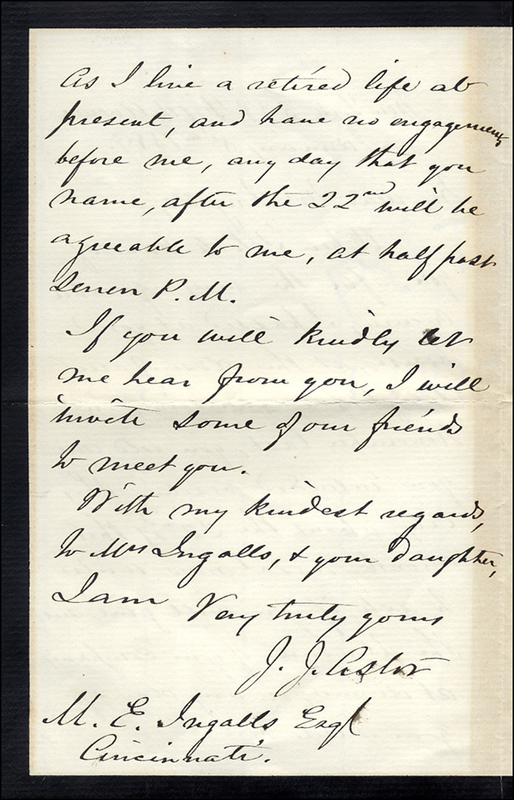 As I live a retired life at
present, and have no engagements
before me, any day that you
name, after the 22nd will be
agreeable to me, at half past
Seven P.M.
If you will kindly let
me hear from you, I will
invite some of our friends
to meet you.
With my kindest regards,
to Mrs Ingalls, & your daughter,
I am Very truly yours
J. J. Astor
M. E. Ingalls Esq
Cincinnati.